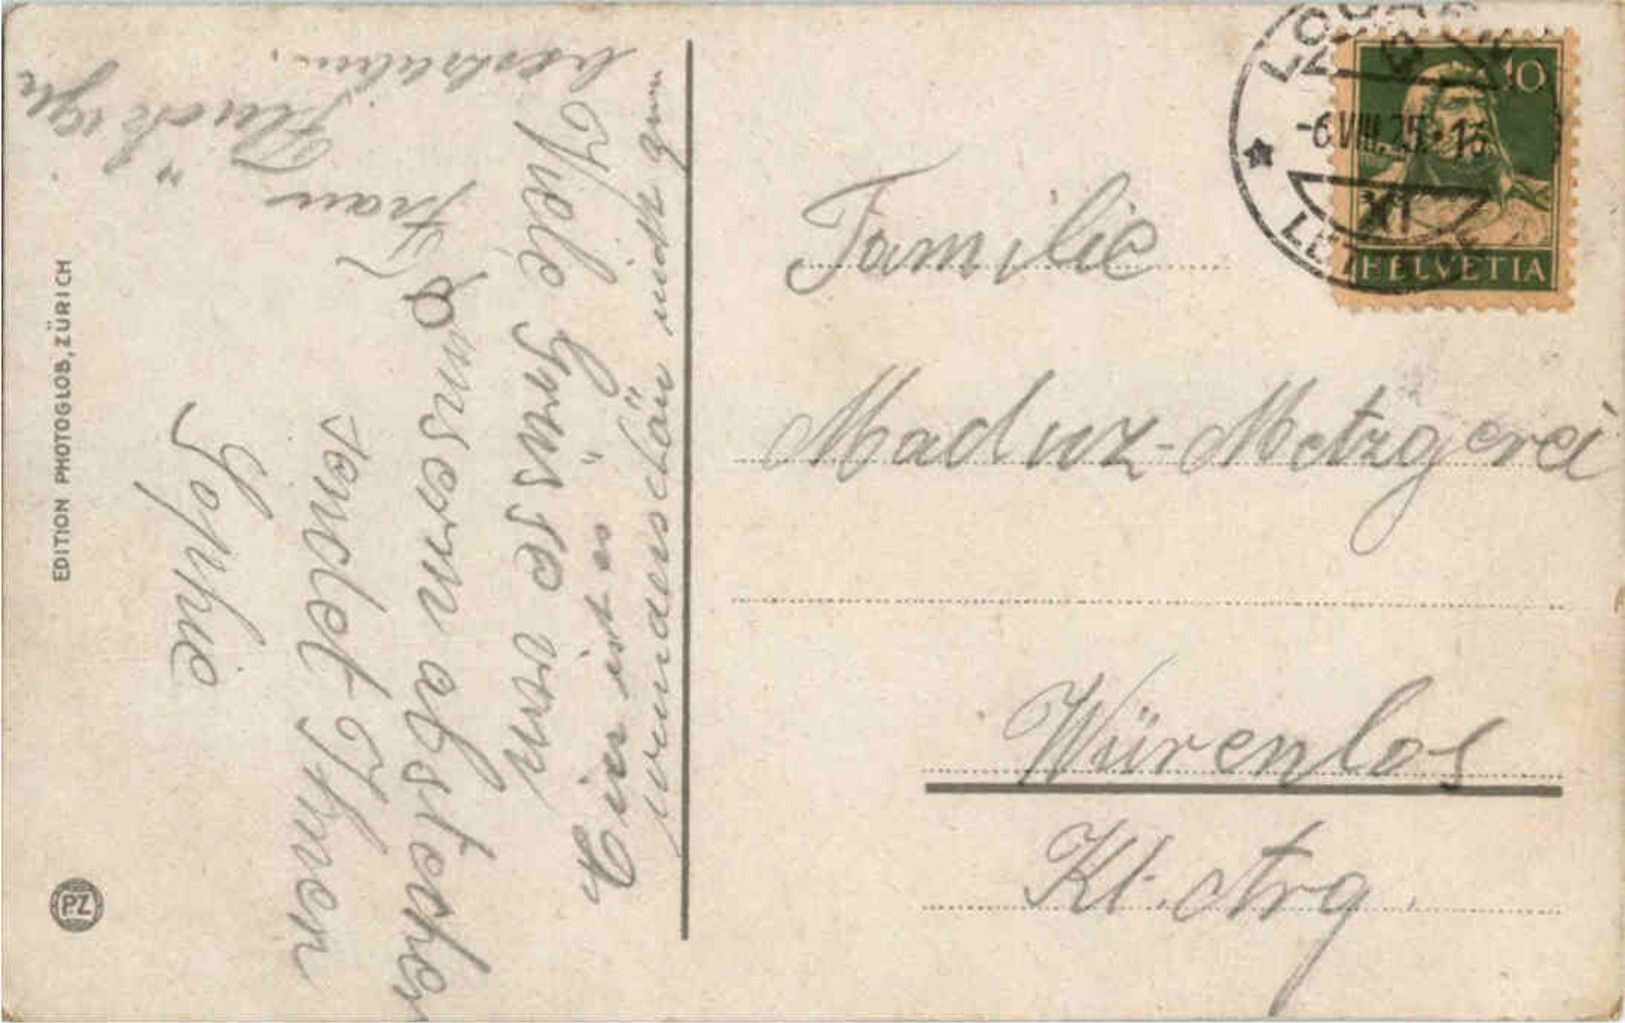 Viele Grüsse von
unserm abstecher
sendet Ihnen
Sophie
Hier ist es
wunderschön nicht zum
beschreiben.
Frau
EDITION PHOTOGLOB, ZÜRICH
PZ
LOCARNO
-6.VIII.25.-13
XI
LETTERE
10
HELVETIA
Familie
Maduz-Metzgerei
Würenlos
Kt. Arg.